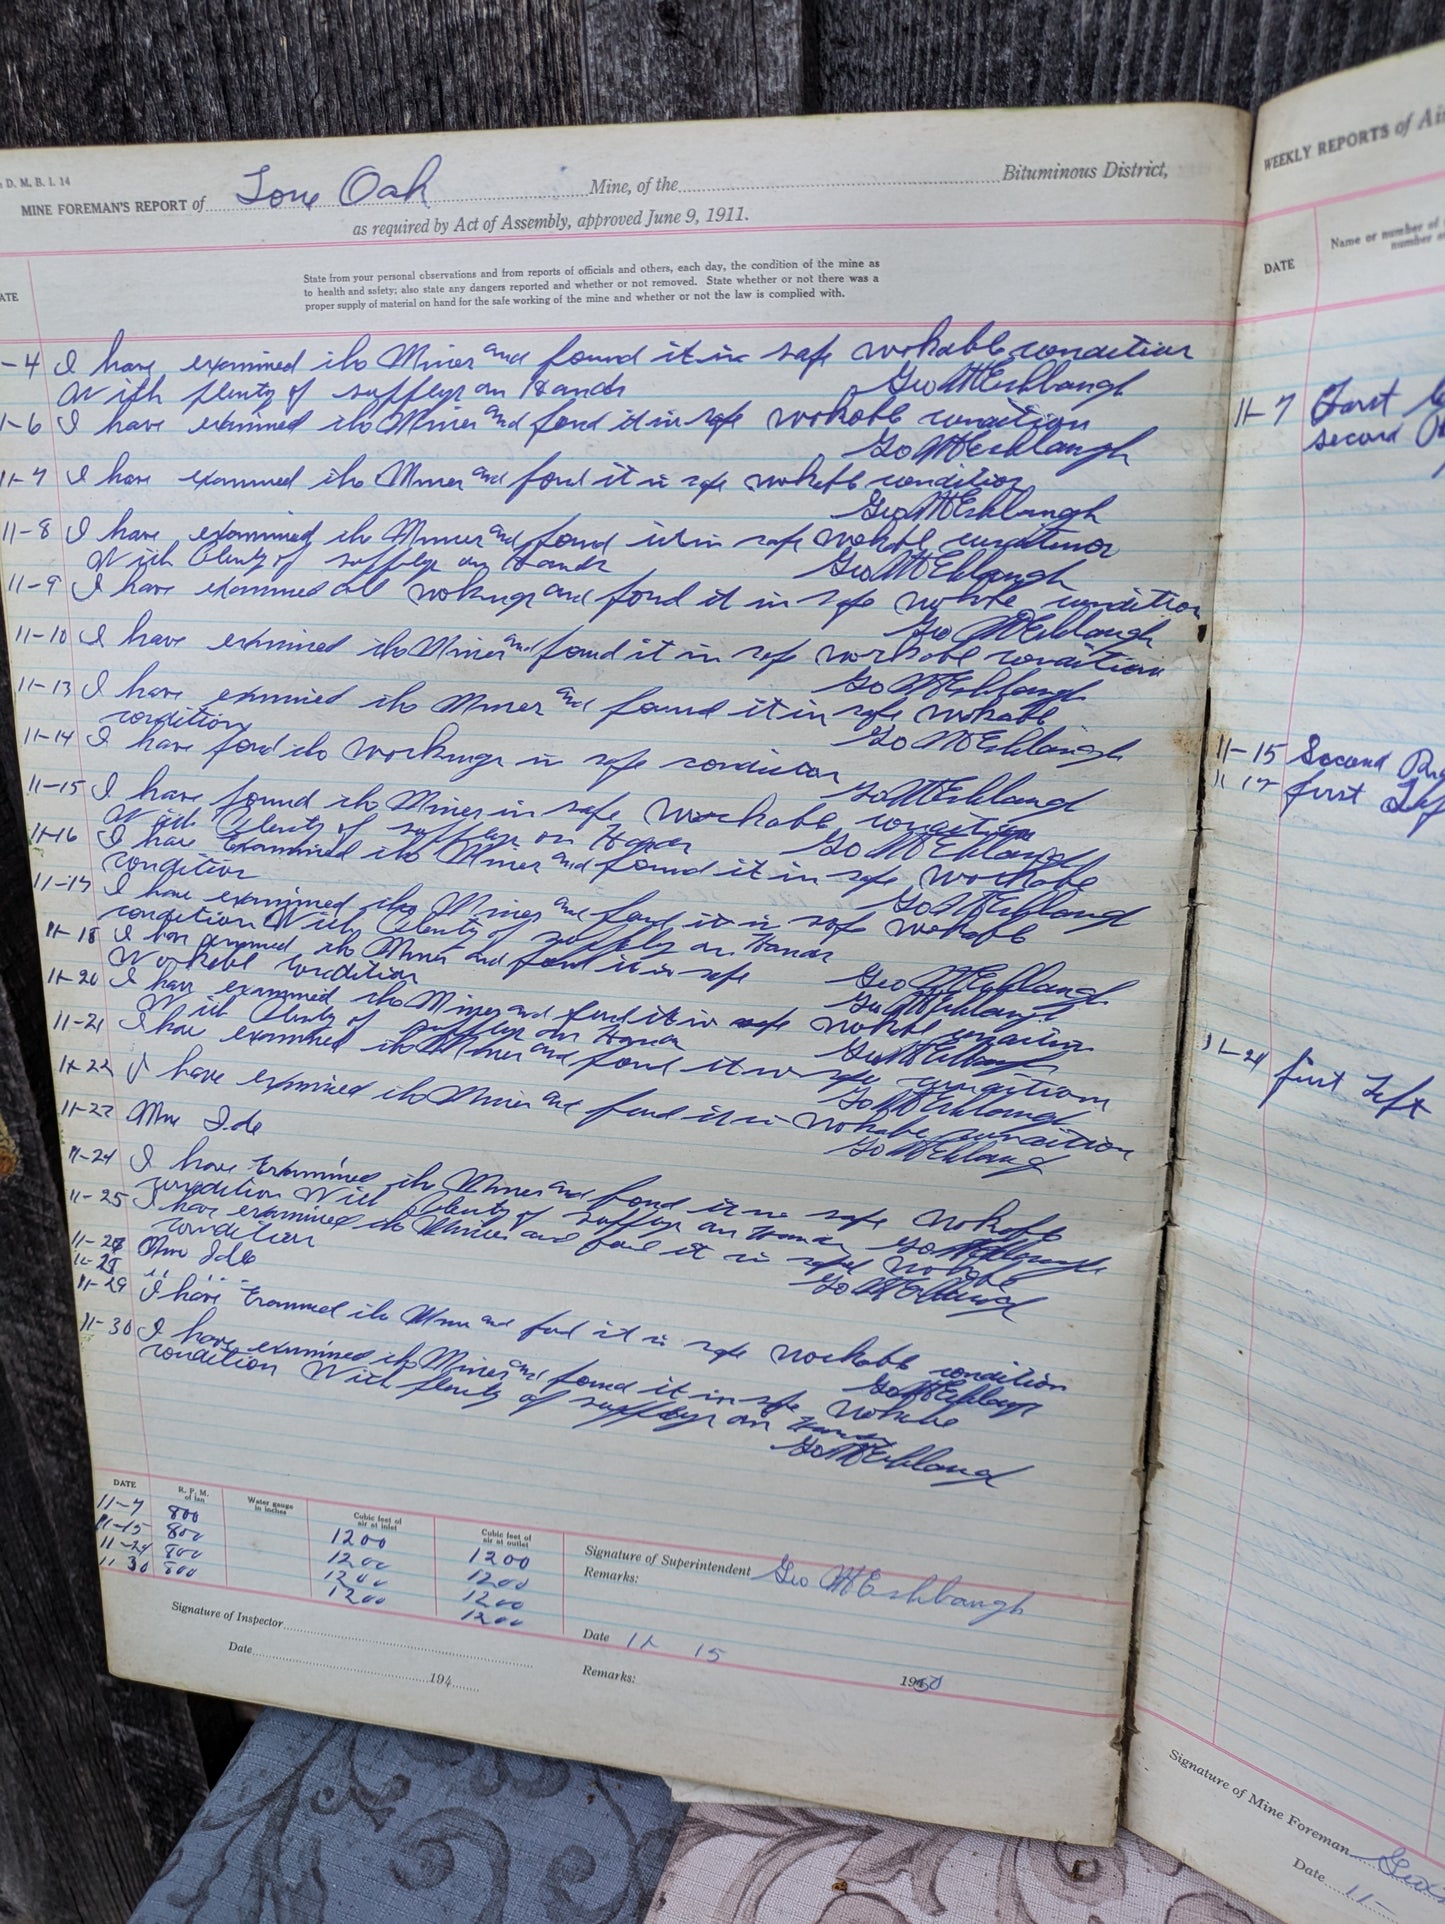 D. M. B. I. 14
MINE FOREMAN'S REPORT of Lone Oak Mine, of the Bituminous District,
as required by Act of Assembly, approved June 9, 1911.
State from your personal observations and from reports of officials and others, each day, the condition of the mine as
to health and safety; also state any dangers reported and whether or not removed. State whether or not there was a
proper supply of material on hand for the safe working of the mine and whether or not the law is complied with.
-4 I have examined the Mines and found it in safe workable condition
With plenty of supplys on Hands Geo M Eshbaugh
-6 I have examined the Mines and fond it in safe workable condition
Geo M Eshbaugh
11-7 I have examined the Mines and fond it in safe workable condition
Geo M Eshbaugh
11-8 I have examined the Mines and fond it in safe workable condition
With plenty of supplys on Hands Geo M Eshbaugh
11-9 I have examined all workings and fond it in safe workable condition
Geo M Eshbaugh
11-10 I have examined the Mines and fond it in safe workable condition
Geo M Eshbaugh
11-13 I have examined the Mines and found it in safe workable
condition Geo M Eshbaugh
11-14 I have fond the workings in safe condition
Geo M Eshbaugh
11-15 I have found the Mines in safe workable condition
With plenty of supplys on Hands Geo M Eshbaugh
11-16 I have Examined the Mines and found it in safe workable
condition Geo M Eshbaugh
11-17 I have examined the Mines and fond it in safe workable
condition With plenty of supplys on Hands
Geo M Eshbaugh
11-18 I have examined the Mines and fond it in safe
workable condition Geo M Eshbaugh
11-20 I have examined the Mines and fond it in safe workable condition
With plenty of supplys on Hands Geo M Eshbaugh
11-21 I have examined the Mines and fond it in safe condition
Geo M Eshbaugh
11-22 I have examined the Mines and fond it in workable condition
Geo M Eshbaugh
11-23 Mine Idle
11-24 I have Examined the Mines and fond it in safe workable
condition With plenty of supplys on Hands Geo M Eshbaugh
11-25 I have examined the Mines and fond it in safe workable
condition Geo M Eshbaugh
11-27 Mine Idle
11-28 " "
11-29 I have Examined the Mine and fond it in safe workable condition
Geo M Eshbaugh
11-30 I have examined the Mines and found it in safe workable
condition With plenty of supplys on Hands
Geo M Eshbaugh
DATE R. P. M. of fan Water gauge in inches Cubic feet of air at inlet Cubic feet of air at outlet
11-7 800 1200 1200
11-15 800 1200 1200
11-24 800 1200 1200
11 30 800 1200 1200
Signature of Superintendent Geo M Eshbaugh
Remarks:
Signature of Inspector
Date 11 15 1950
Date 194
Remarks:
WEEKLY REPORTS of Air
DATE Name or number of
11-7 First
second
11-15 Second
11 17 first Lef
11-24 first Left
Signature of Mine Foreman Geo
Date 11-